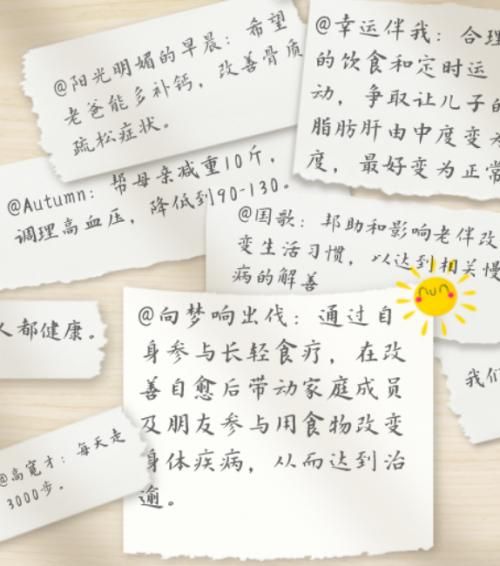 @阳光明媚的早晨：希望
老爸能多补钙，改善骨质
疏松症状。
@幸运伴我：合理
的饮食和定时运
动，争取让儿子的
脂肪肝由中度变为
度，最好变为正常
@Autumn：帮母亲减重10斤，
调理高血压，降低到90-130。
@国歌：帮助和影响老伴改
变生活习惯，以达到相关慢
病的解善
人都健康。
@向梦响出伐：通过自
身参与长轻食疗，在改
善自愈后带动家庭成员
及朋友参与用食物改变
身体疾病，从而达到治
逾。
我们
@高宽才：每天走
3000步。